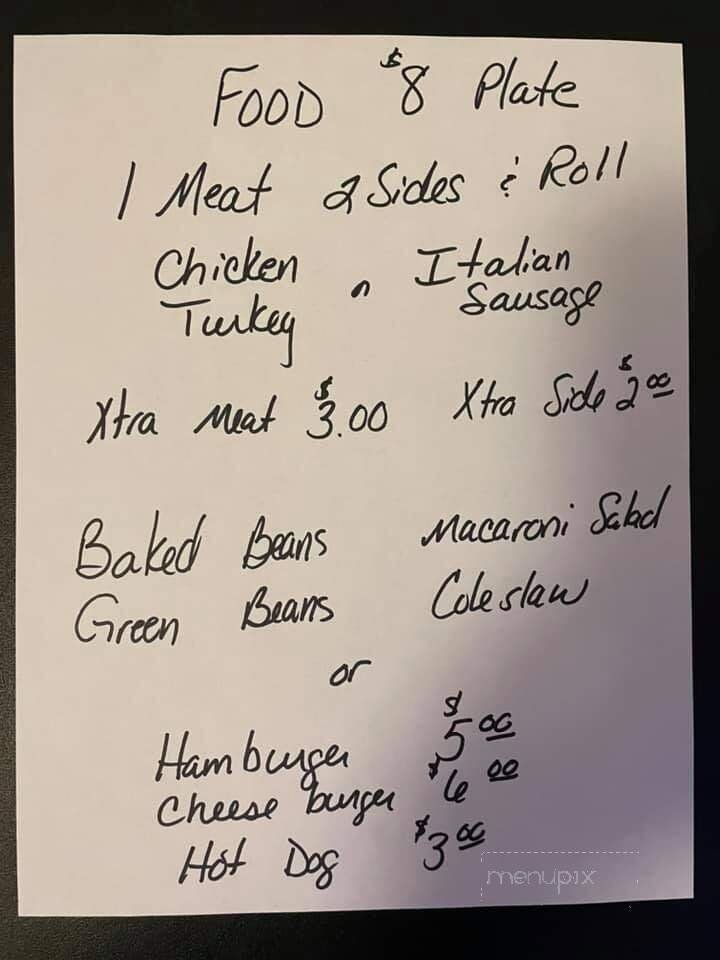 FOOD $8 Plate
1 Meat 2 Sides & Roll
Chicken Italian
Turkey or Sausage
Xtra Meat $3.00 Xtra Side $2.00
Baked Beans Macaroni Salad
Green Beans Coleslaw
or
Hamburger $5.00
Cheese burger $6.00
Hot Dog $3.00
menupix